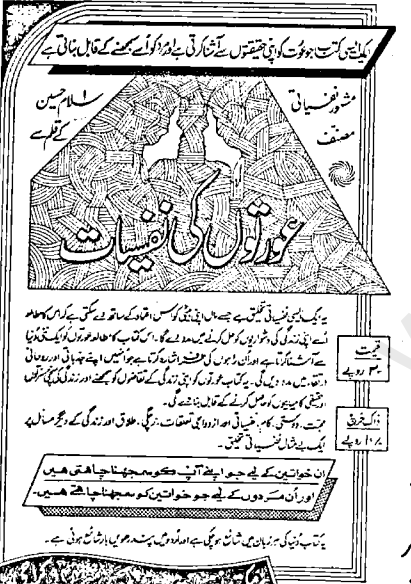 ایک ایسی کتاب جو عورت کو اپنی حقیقتوں سے آشنا کرتی ہے اور مرد کو اُسے سمجھنے کے قابل بناتی ہے
مشہور نفسیاتی
مصنف
اسلام حسین
کے قلم سے
عورتوں کی نفسیات
یہ ایک ایسی نفسیاتی تخلیق ہے جسے ماں اپنی بیٹی کو اس اعتماد کے ساتھ دے سکتی ہے کہ اس کا مطالعہ
اُسے اپنی زندگی کی دشواریوں کو حل کرنے میں مدد دے گا۔ اس کتاب کا مطالعہ عورتوں کو ایک نئی دُنیا
سے آشنا کرتا ہے اور اُن راہوں کی طرف اشارہ کرتا ہے جو انہیں اپنے جذباتی اور روحانی
ارتقاء میں مدد دیں گی۔ یہ کتاب عورتوں کو اپنی زندگی کے تقاضوں کو سمجھنے اور زندگی کی سچی مسرتوں
اور حقیقی کامیابیوں کو حاصل کرنے کے قابل بنائے گی۔
محبت، دوستی، کام، نفسیاتی اور ازدواجی تعلقات، زچگی، طلاق اور زندگی کے دیگر مسائل پر
ایک بے مثال نفسیاتی تخلیق۔
قیمت
۳۰ روپے
ڈاک خرچ
۱۰/ روپے
ان خواتین کے لیے جو اپنے آپ کو سمجھنا چاھتی ھیں
اور اُن مردوں کے لیے جو خواتین کو سمجھنا چاھتے ھیں۔
یہ کتاب دُنیا کی ہر زبان میں شائع ہو چکی ہے اور اُردو میں پندرھویں بار شائع ہوئی ہے۔